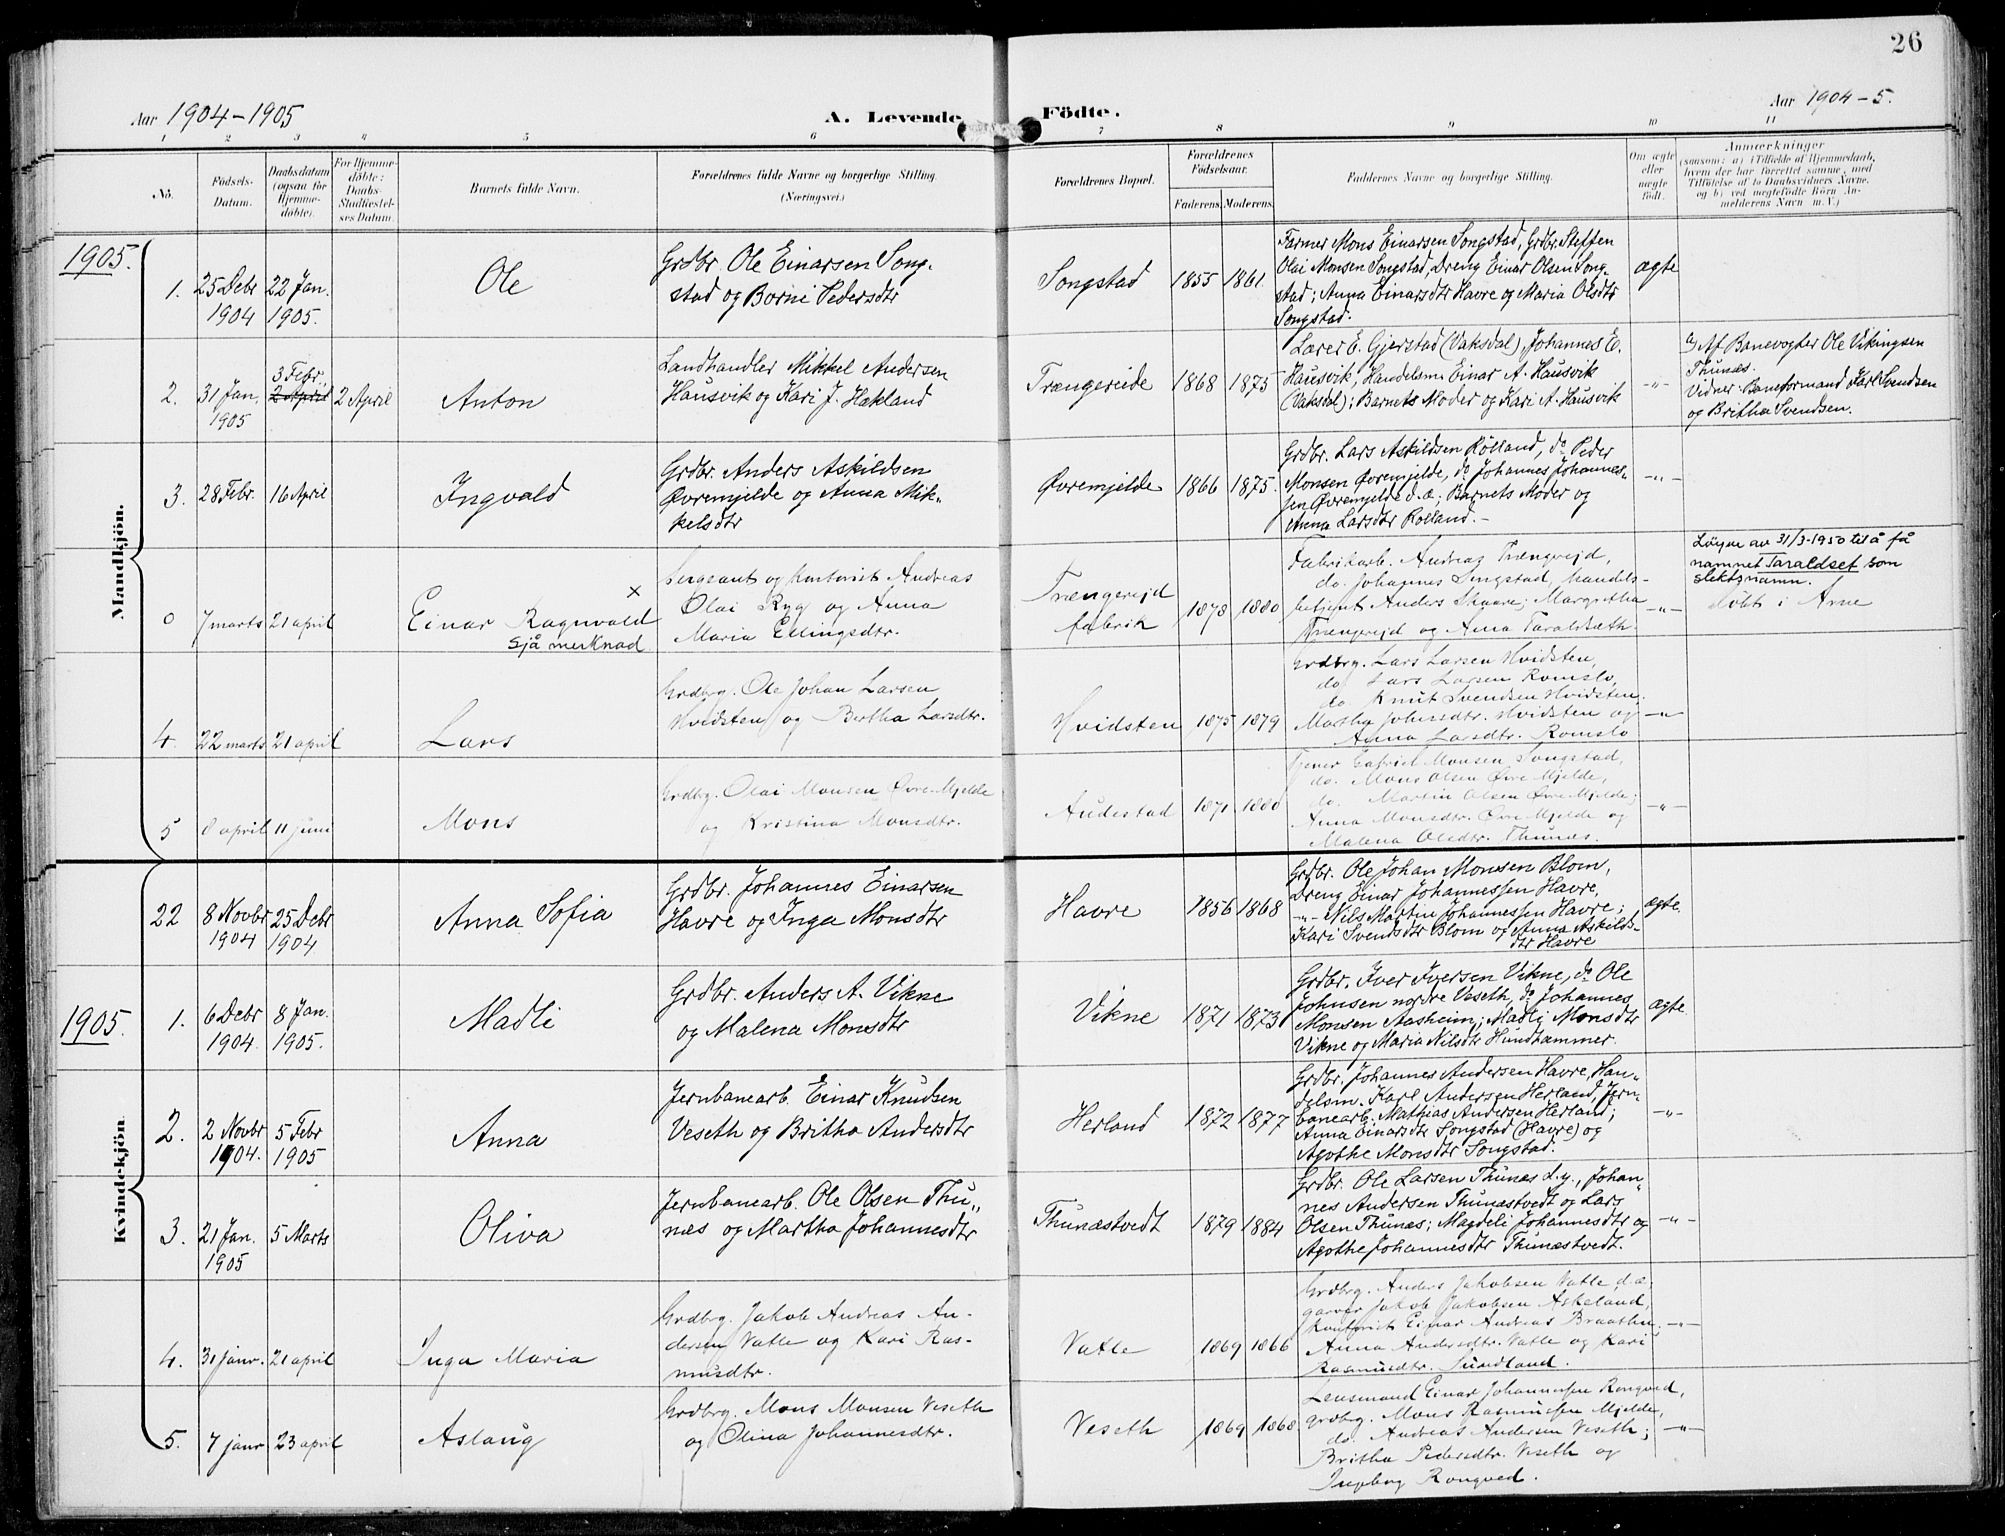 26
Aar 1904-1905
A. Levende Födte.
Aar 1904-5.
1 2 3 4 5 6 7 8 9 10 11
No.
Födsels-
Datum.
Daabsdatum
(ogsaa for
Hjemme-
döbte).
For Hjemme-
döbte:
Daabs-
Stadfæstel-
ses Datum.
Barnets fulde Navn.
Forældrenes fulde Navne og borgerlige Stilling.
(Næringsvei.)
Forældrenes Bopæl.
Forældrenes
Födselsaar.
Faderens. Moderens.
Faddernes Navne og borgerlige Stilling.
Om ægte
eller
uægte
födt.
Anmærkninger
(saasom: a) i Tilfælde af Hjemmedaab,
hvem der har forrettet samme, med
Tilföielse af to Daabsvidners Navne,
og b) ved uegtefödte Börn An-
melderens Navn m. V.)
Mandkjön.
1905.
1.
25 Debr
1904
22 Jan.
1905.
Ole
Grdbr. Ole Einarsen Song-
stad og Borni Pedersdtr
Songstad
1855 1861
Farmer Mons Einarsen Songstad, Grdbr. Steffen
Olai Monsen Songstad, Dreng Einar Olsen Song-
stad; Anna Einarsdtr Havre og Maria Olsdtr
Songstad.
ægte
2.
31 Jan.
1905
3 Febr.
2 April
2 April
Anton
Landhandler Mikkel Andersen
Hausvik og Kari J. Hakland
Trængereide
1868 1875
Lærer E. Gjerstad (Vaksdal), Johannes E.
Hausvik, Handelsm. Einar A. Hausvik
(Vaksdal); Barnets Moder og Kari A. Hausvik
-"-
a) Af Banevogter Ole Vikingsen
Thunes.
Vidner: Baneformand Karl Svendsen
og Britha Svendsen.
3.
28 Febr.
16 April
Ingvald
Grdbr. Anders Askildsen
Øvremjelde og Anna Mik-
kelsdtr
Øvremjelde
1866 1875.
Grdbr. Lars Askildsen Rolland, do Peder
Monsen Øvremjelde, do Johannes Johannes-
sen Øvremjelde d.æ; Barnets Moder og
Anna Larsdtr Rolland.-
-"-
0
7 marts
21 april
Einar Ragnvald x
Sjå merknad
Sergeant og kontorist Andreas
Olai Ryg og Anna
Maria Ellingsdtr.
Trængereid
fabrik
1878 1880
Fabrikarb. Andreas Trængereid,
do. Johannes Songstad, handels-
betjent Anders Skaare; Margretha
Trængereid og Anna Taraldsæth.
-"-
Løyve av 31/3-1950 til å få
namnet Taraldset som
slektsnamn.
døbt i Arne
4.
22 marts
21 april
Lars
Grdbrg. Ole Johan Larsen
Hvidsten og Bertha Larsdtr.
Hvidsten
1875 1879
Grdbrg. Lars Larsen Hvidsten,
do Lars Larsen Romslo,
do Knut Svendsen Hvidsten;
Martha Johnsdtr. Hvidsten og
Anna Larsdtr. Romslo
-"-
5
8 april
11 juni
Mons
Grdbrg. Olai Monsen Øvre-Mjelde
og Kristina Monsdtr.
Audestad
1871 1880
Tjener Gabriel Monsen Songstad,
do. Mons Olsen Øvre Mjelde,
do. Martin Olsen Øvre-Mjelde;
Anna Monsdtr. Øvre Mjelde og
Malena Olsdtr. Thunæs.
-"-
Kvindekjön.
22
8 Novbr
1904
25 Debr
1904
Anna Sofia
Grdbr. Johannes Einarsen
Havre og Inga Monsdtr
Havre
1856 1868
Grdbr. Ole Johan Monsen Blom,
Dreng Einar Johannessen Havre,
-"- Nils Martin Johannessen Havre;
Kari Svendsdtr Blom og Anna Askilds-
dtr Havre
ægte.
1905.
1.
6 Debr
1904.
8 Jan.
1905.
Madli
Grdbr. Anders A. Vikne
og Malena Monsdtr
Vikne
1871 1873
Grdbr. Iver Iversen Vikne, do Ole
Johnsen nordre Veseth, do Johannes
Monsen Aasheim; Madli Monsdtr
Vikne og Maria Nilsdtr Hundhammer.
ægte
2.
2 Novbr
1904.
5 Febr
1905
Anna
Jernbanearb. Einar Knudsen
Veseth og Britha Andersdtr
Herland
1872 1877
Grdbr. Johannes Andersen Havre, Han-
delsm. Karl Andersen Herland, Jern-
banearb. Mathias Andersen Herland;
Anna Einarsdtr Songstad (Havre) og
Agothe Monsdtr Songstad.
-"-
3.
21 Jan.
1905
5 Marts
Oliva
Jernbanearb. Ole Olsen Thu-
næs og Martha Johannesdtr
Thunæstvedt
1879 1884
Grdbr. Ole Larsen Thunæs d.y., Johan-
nes Andersen Thunæstvedt og Lars
Olsen Thunæs; Magdeli Johannesdtr og
Agothe Johannesdtr Thunæstvedt.
-"-
4.
31 janr.
21 april
Inga Maria
Grdbrg. Jakob Andreas An-
dersen Vatle og Kari Ras-
musdtr.
Vatle
1869 1866
Grdbrg. Anders Jakobsen Vatle d.æ.
garver Jakob Jakobsen Askeland,
kontorist Einar Andreas Braathu;
Anna Andersdtr. Vatle og Kari
Rasmusdtr. Sundland.
-"-
5.
7 janr
23 april
Aslaug
Grdbrg. Mons Monsen Veseth
og Olina Johannesdtr.
Veseth
1869 1868
Lensmand Einar Johannessen Rongved,
grdbrg. Mons Rasmussen Mjelde,
do. Andreas Andersen Veseth;
Britha Pedersdtr. Veseth og
Ingeborg Rongved.
-"-